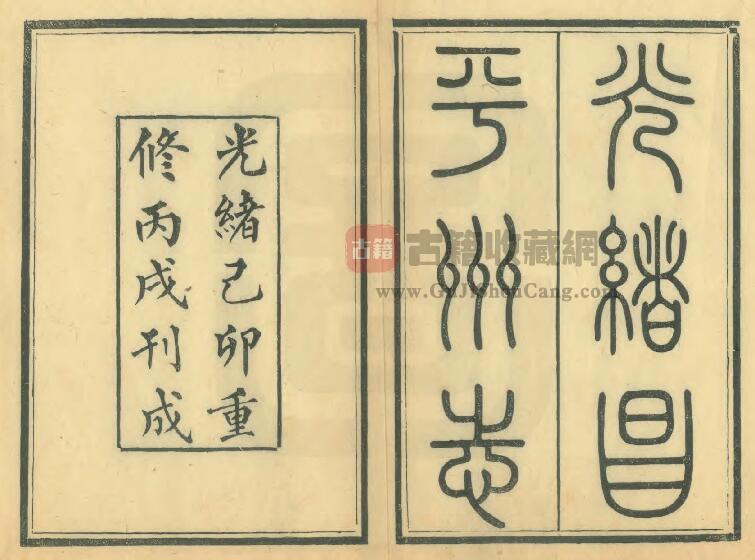 光緒昌
平州志
光緒己卯重
修丙戌刊成
古籍
古籍收藏網
www.GuJiShouCang.com